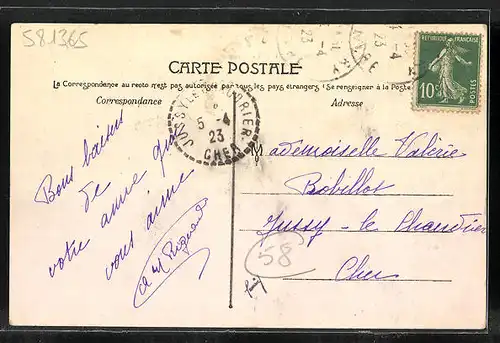 581365
CARTE POSTALE
La Correspondance au recto n'est pas autorisée par tous les pays étrangers (Se renseigner à la Poste)
Correspondance
Adresse
REPUBLIQUE FRANÇAISE
10c
5-4
23
CHER
Bons baisers
de
votre amie qui
vous aime
Mademoiselle Valérie
Bobillot
Jussy-le Chaudrier
Cher
58